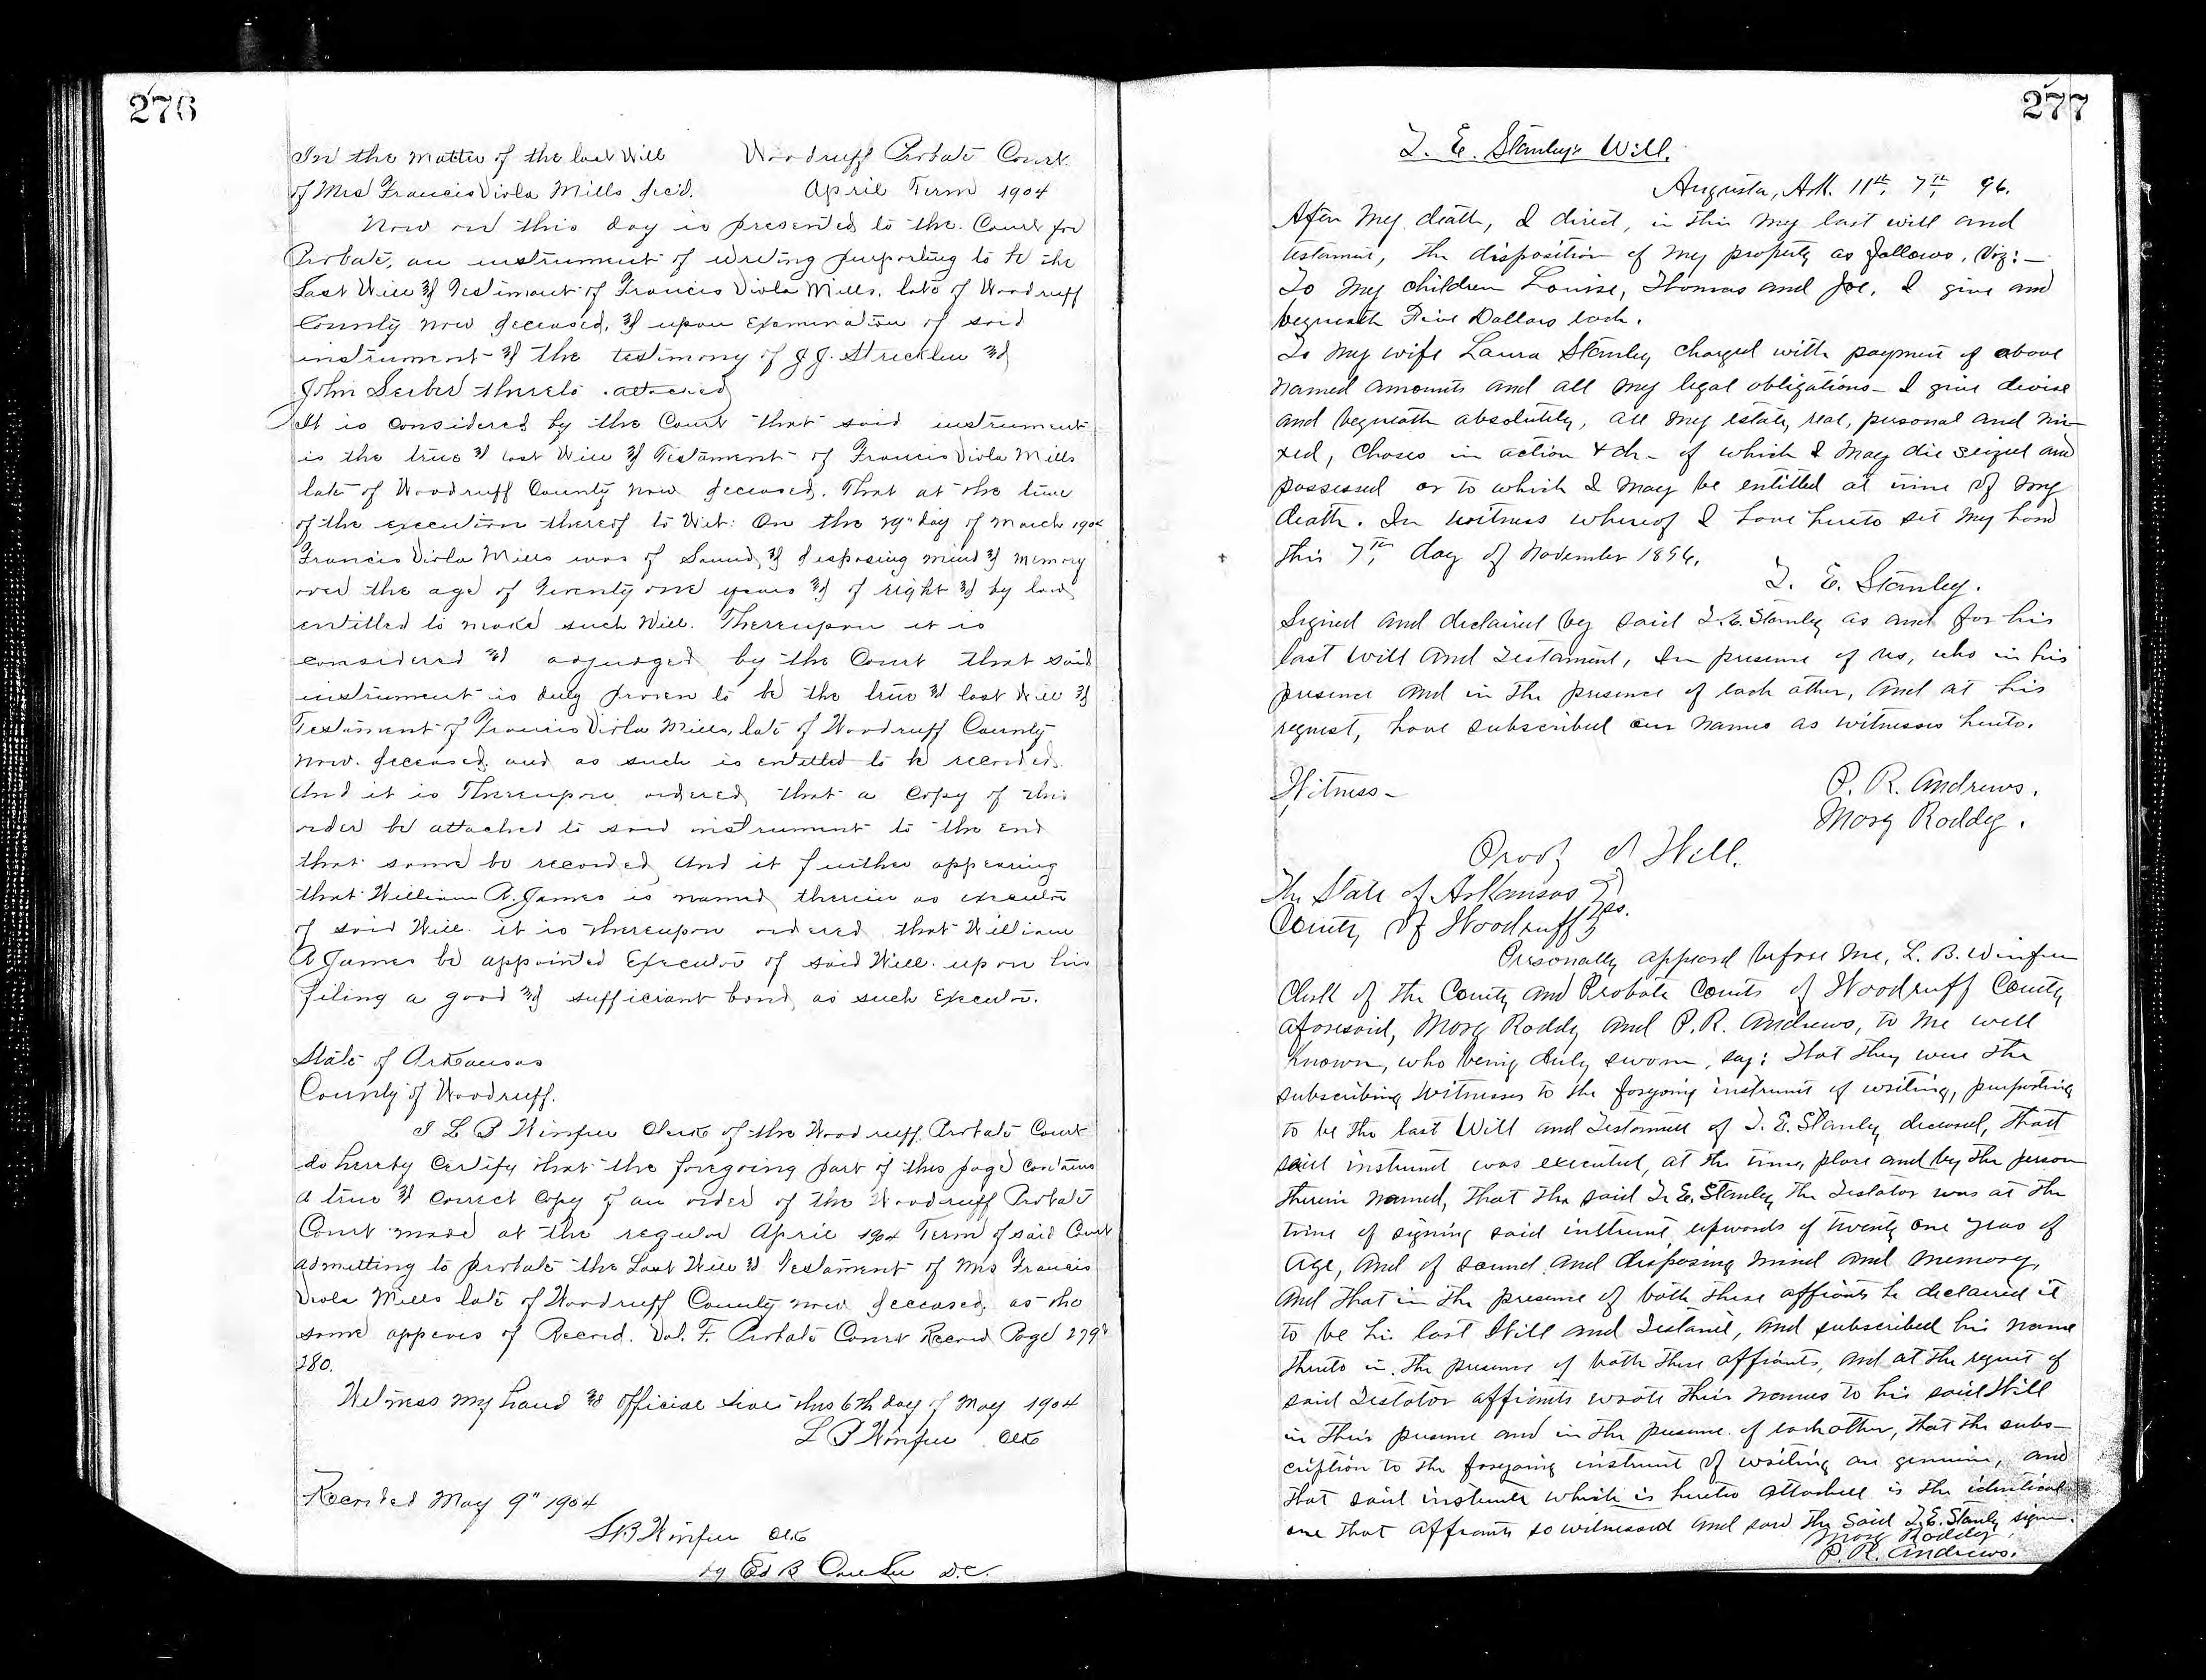 276
In the matter of the last Will Woodruff Probate Court.
of Mrs Francis Viola Mills dec'd. April Term 1904
Now on this day is presented to the Court for
Probate, an instrument of writing purporting to be the
Last Will & Testiment of Francis Viola Mills, late of Woodruff
County now deceased, & upon Examination of said
instrument & the testimony of J. J. Stricklen &
John thereto attached
It is considered by the Court that said instrument
is the true & last Will & Testament of Francis Viola Mills
late of Woodruff County now deceased. That at the time
of the execution thereof to Wit: On the 29" day of March 1904
Francis Viola Mills was of Sound & disposing mind & memory
over the age of Twenty one years & of right & by law
entitled to make such Will. Thereupon it is
considered & adjudged by the Court that said
instrument is duly proven to be the true & last Will &
Testament of Francis Viola Mills, late of Woodruff County
now deceased and as such is entitled to be recorded.
And it is Thereupon ordered that a Copy of this
order be attached to said instrument to the end
that same be recorded And it further appearing
that William A. James is named therein as executor
of said Will. it is thereupon ordered that William
A James be appointed Executor of said Will. upon his
filing a good & sufficiant bond as such Executor.
State of Arkansas
County of Woodruff.
I L B Winfree Clerk of the Woodruff Probate Court
do hereby Certify that the foregoing part of this page contains
a true & correct copy of an order of the Woodruff Probate
Court made at the regular April 1904 Term of said Court
admitting to probate the Last Will & Testament of Mrs Francis
Viola Mills late of Woodruff County now deceased, as the
same appears of Record. Vol. F. Probate Court Record Page 279 &
280.
Witness my hand & official seal this 6th day of May 1904
L B Winfree Clk
Recorded May 9" 1904
L B Winfree Clk
by Ed B D.C.
277
T. E. Stanley's Will.
Augusta, Ark. 11th, 7th, 96.
After my death, I direct, in this my last will and
testament, the disposition of my property as follows, Viz:—
To my children Louise, Thomas and Joe, I give and
bequeath Five Dollars each.
To my wife Laura Stanley charged with payment of above
named amounts and all my legal obligations— I give devise
and bequeath absolutely, all my estate, real, personal and mi-
xed, choses in action &ch — of which I may die seized and
possessed or to which I may be entitled at time of my
death. In witness whereof I have hereto set my hand
this 7th, day of November 1896.
T. E. Stanley.
Signed and declaired by said T. E. Stanley as and for his
last will and Testament, In presence of us, who in his
presence and in the presence of each other, and at his
request, have subscribed our names as witnesses hereto.
Witness— P. R. Andrews.
Mosg Roddy.
Proof of Will.
The State of Arkansas } ss.
County of Woodruff }
Personally appeard before me, L. B. Winfree
Clerk of the County and Probate Courts of Woodruff County
aforesaid, Mosg Roddy and P. R. Andrews, to me well
known, who being duly sworn, say: That they were the
subscribing witnesses to the foregoing instrument of writing, purporting
to be the last Will and Testament of T. E. Stanley deceased, that
said instrument was executed, at the time, place and by the person
therein named, that the said T. E. Stanley the Testator was at the
time of signing said instrument upwards of twenty one years of
age, and of sound and disposing mind and memory,
and that in the presence of both these affiants he declaired it
to be his last Will and Testament, and subscribed his name
thereto in the presence of both these affiants, and at the request of
said Testator affiants wrote their names to his said Will
in their presence and in the presence of each other, that the subs-
cription to the foregoing instrument of writing are genuine, and
that said instrument which is hereto attached is the identical
one that affiants so witnessed and saw the said T. E. Stanley sign.
Mosg Roddy,
P. R. Andrews.